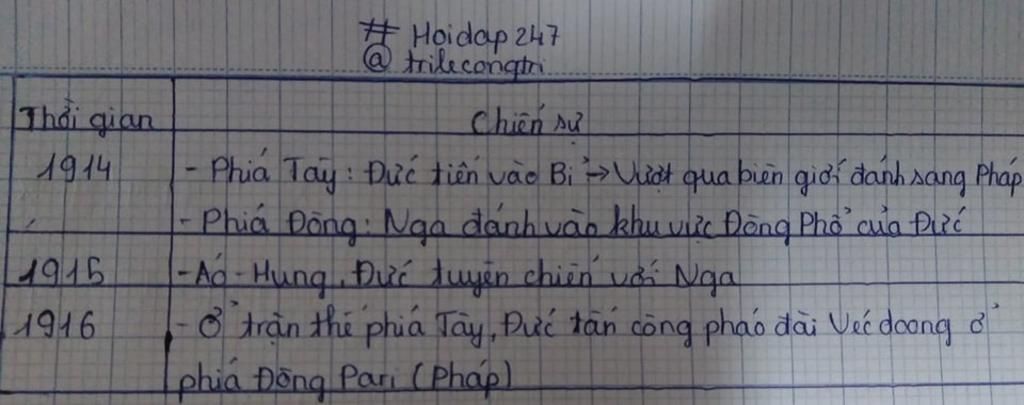 # Hoidap247
@ trilecongtri
Thời gian Chiến sự
1914 - Phía Tây: Đức tiến vào Bỉ → Vượt qua biên giới đánh sang Pháp
- Phía Đông: Nga đánh vào khu vực Đông Phổ của Đức
1915 - Áo - Hung, Đức tuyên chiến với Nga
1916 - Ở trận thế phía Tây, Đức tấn công pháo đài Vécdoong ở
phía Đông Pari (Pháp)